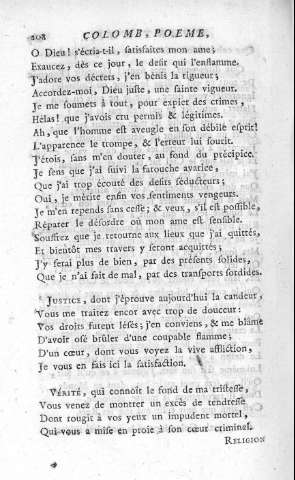 208 COLOMB, POEME,
O Dieu ! s'écria-t-il, satisfaites mon ame ;
Exaucez, dès ce jour, le desir qui l'enflamme.
J'adore vos décrets, j'en bénis la rigueur ;
Accordez-moi, Dieu juste, une sainte vigueur.
Je me soumets à tout, pour expier des crimes,
Hélas ! que j'avois cru permis & légitimes.
Ah, que l'homme est aveugle en son débile esprit !
L'apparence le trompe, & l'erreur lui sourit.
J'étois, sans m'en douter, au fond du précipice.
Je sens que j'ai suivi la farouche avarice,
Que j'ai trop écouté des desirs séducteurs ;
Oui, je mérite enfin vos sentimens vengeurs.
Je m'en repends sans cesse ; & veux, s'il est possible,
Réparer le désordre où mon ame est sensible.
Souffrez que je retourne aux lieux que j'ai quittés,
Et bientôt mes travers y seront acquittés ;
J'y ferai plus de bien, par des présents solides,
Que je n'ai fait de mal, par des transports sordides.
JUSTICE, dont j'éprouve aujourd'hui la candeur,
Vous me traitez encor avec trop de douceur :
Vos droits furent lésés ; j'en conviens, & me blâme
D'avoir osé brûler d'une coupable flamme ;
D'un cœur, dont vous voyez la vive affliction,
Je vous en fais ici la satisfaction.
VÉRITÉ, qui connoît le fond de ma tristesse,
Vous venez de montrer un excès de tendresse
Dont rougit à vos yeux un impudent mortel,
Qui vous a mise en proie à son cœur criminel.
RELIGION